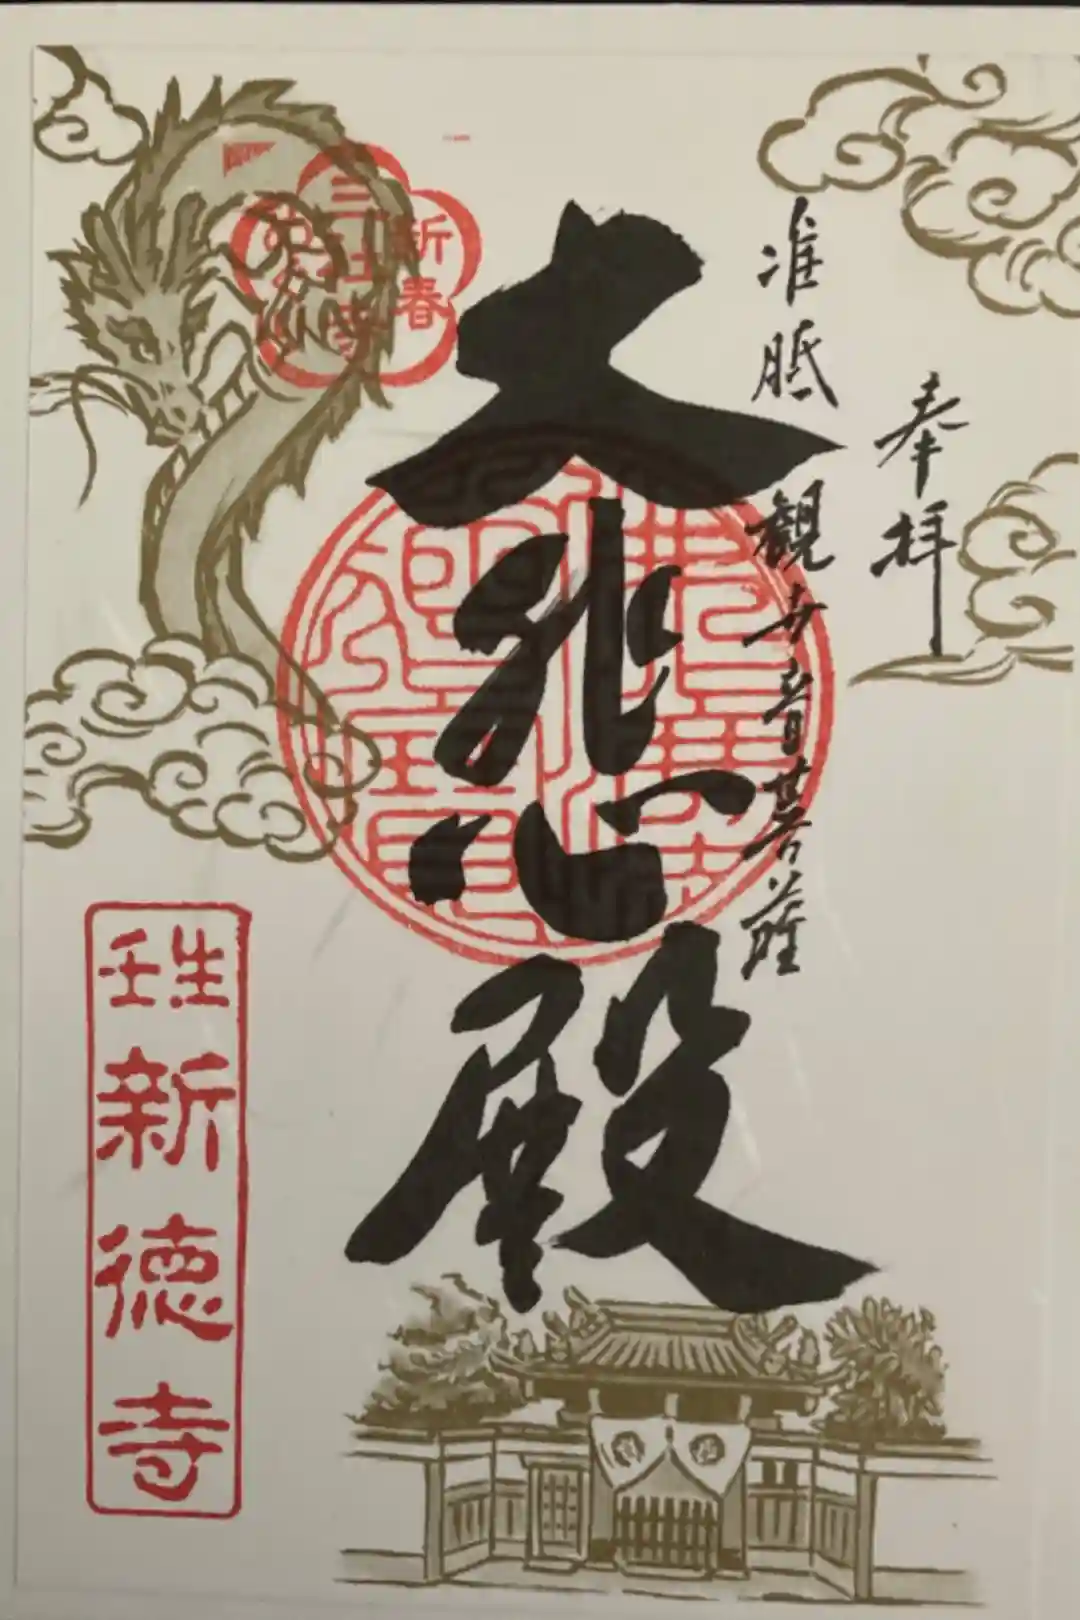 奉拝
准胝観世音菩薩
大悲殿
新春
三社寺
壬生
新徳寺